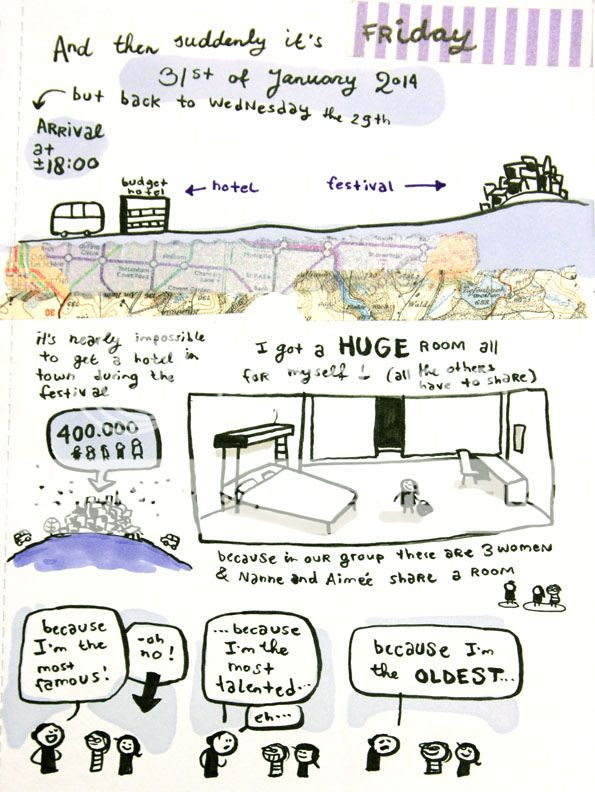 And then suddenly it's FRiday
31st of January 2014
but back to Wednesday the 29th
ARRival
at
±18:00
budget
hotel
← hotel
festival →
it's nearly impossible
to get a hotel in
town during the
festival
400.000
I got a HUGE ROOM all
FOR myself! (all the others
have to share)
because in our group there are 3 women
& Nanne and Aimée share a room
because
I'm the
most
famous!
-oh
no!
...because
I'm the
most
talented...
eh...
because I'm
the OLDEST...